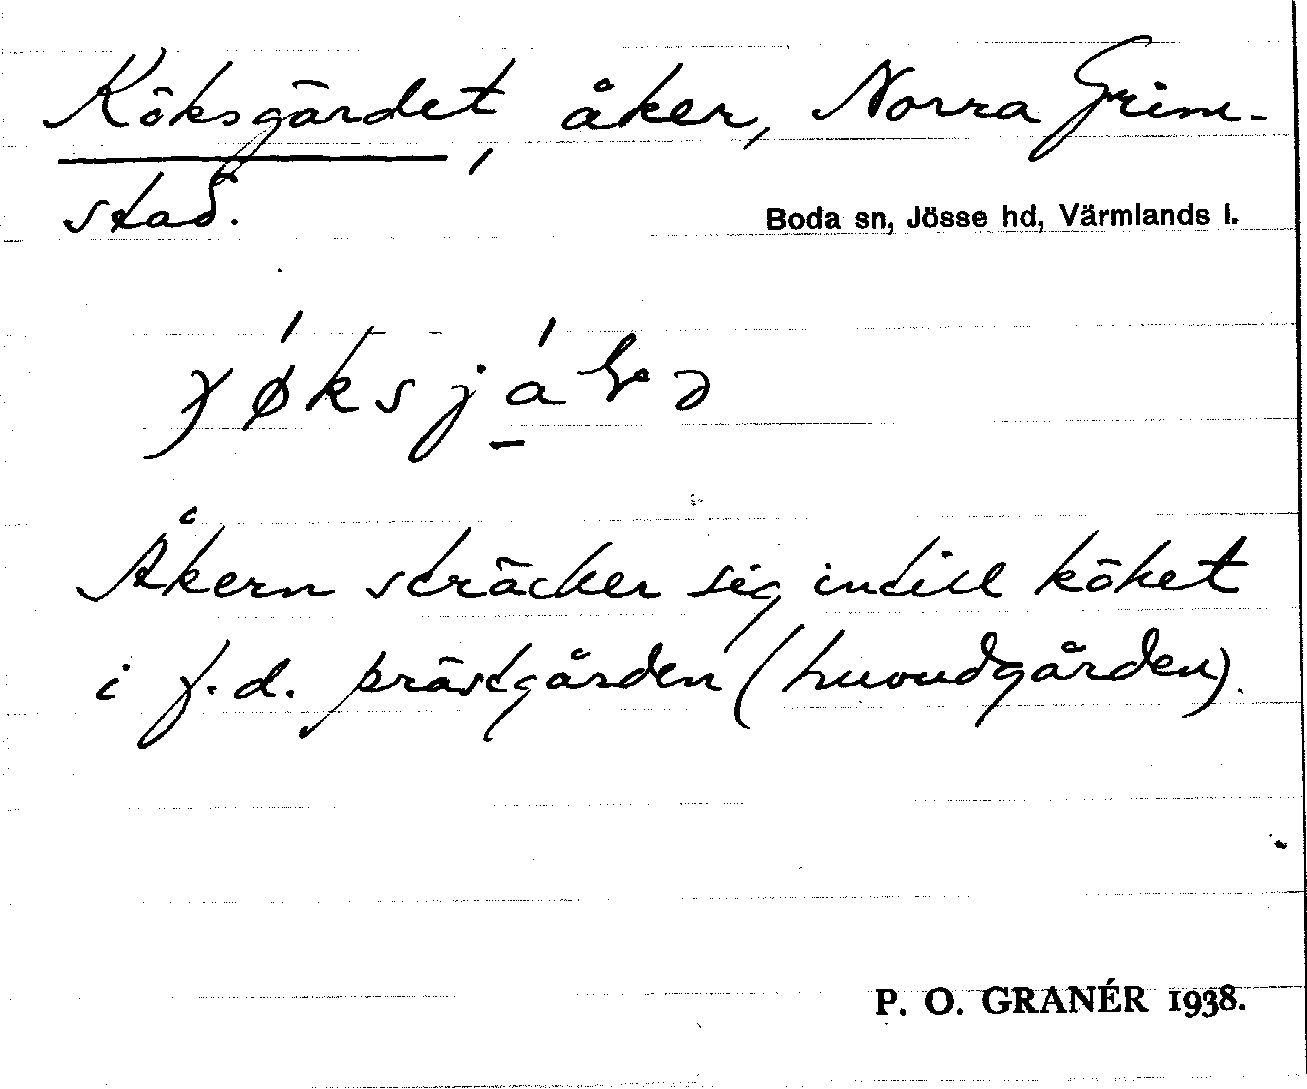 Köksgärdet, åker, Norra Grim-
stad.
Boda sn, Jösse hd, Värmlands l.
Åkern sträcker sig intill köket
i f.d. prästgården (huvudgården).
P. O. GRANÉR 1938.